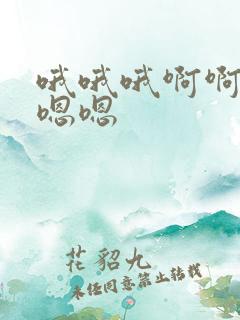 哦哦哦啊啊
嗯嗯
花貂九
未经同意禁止转载